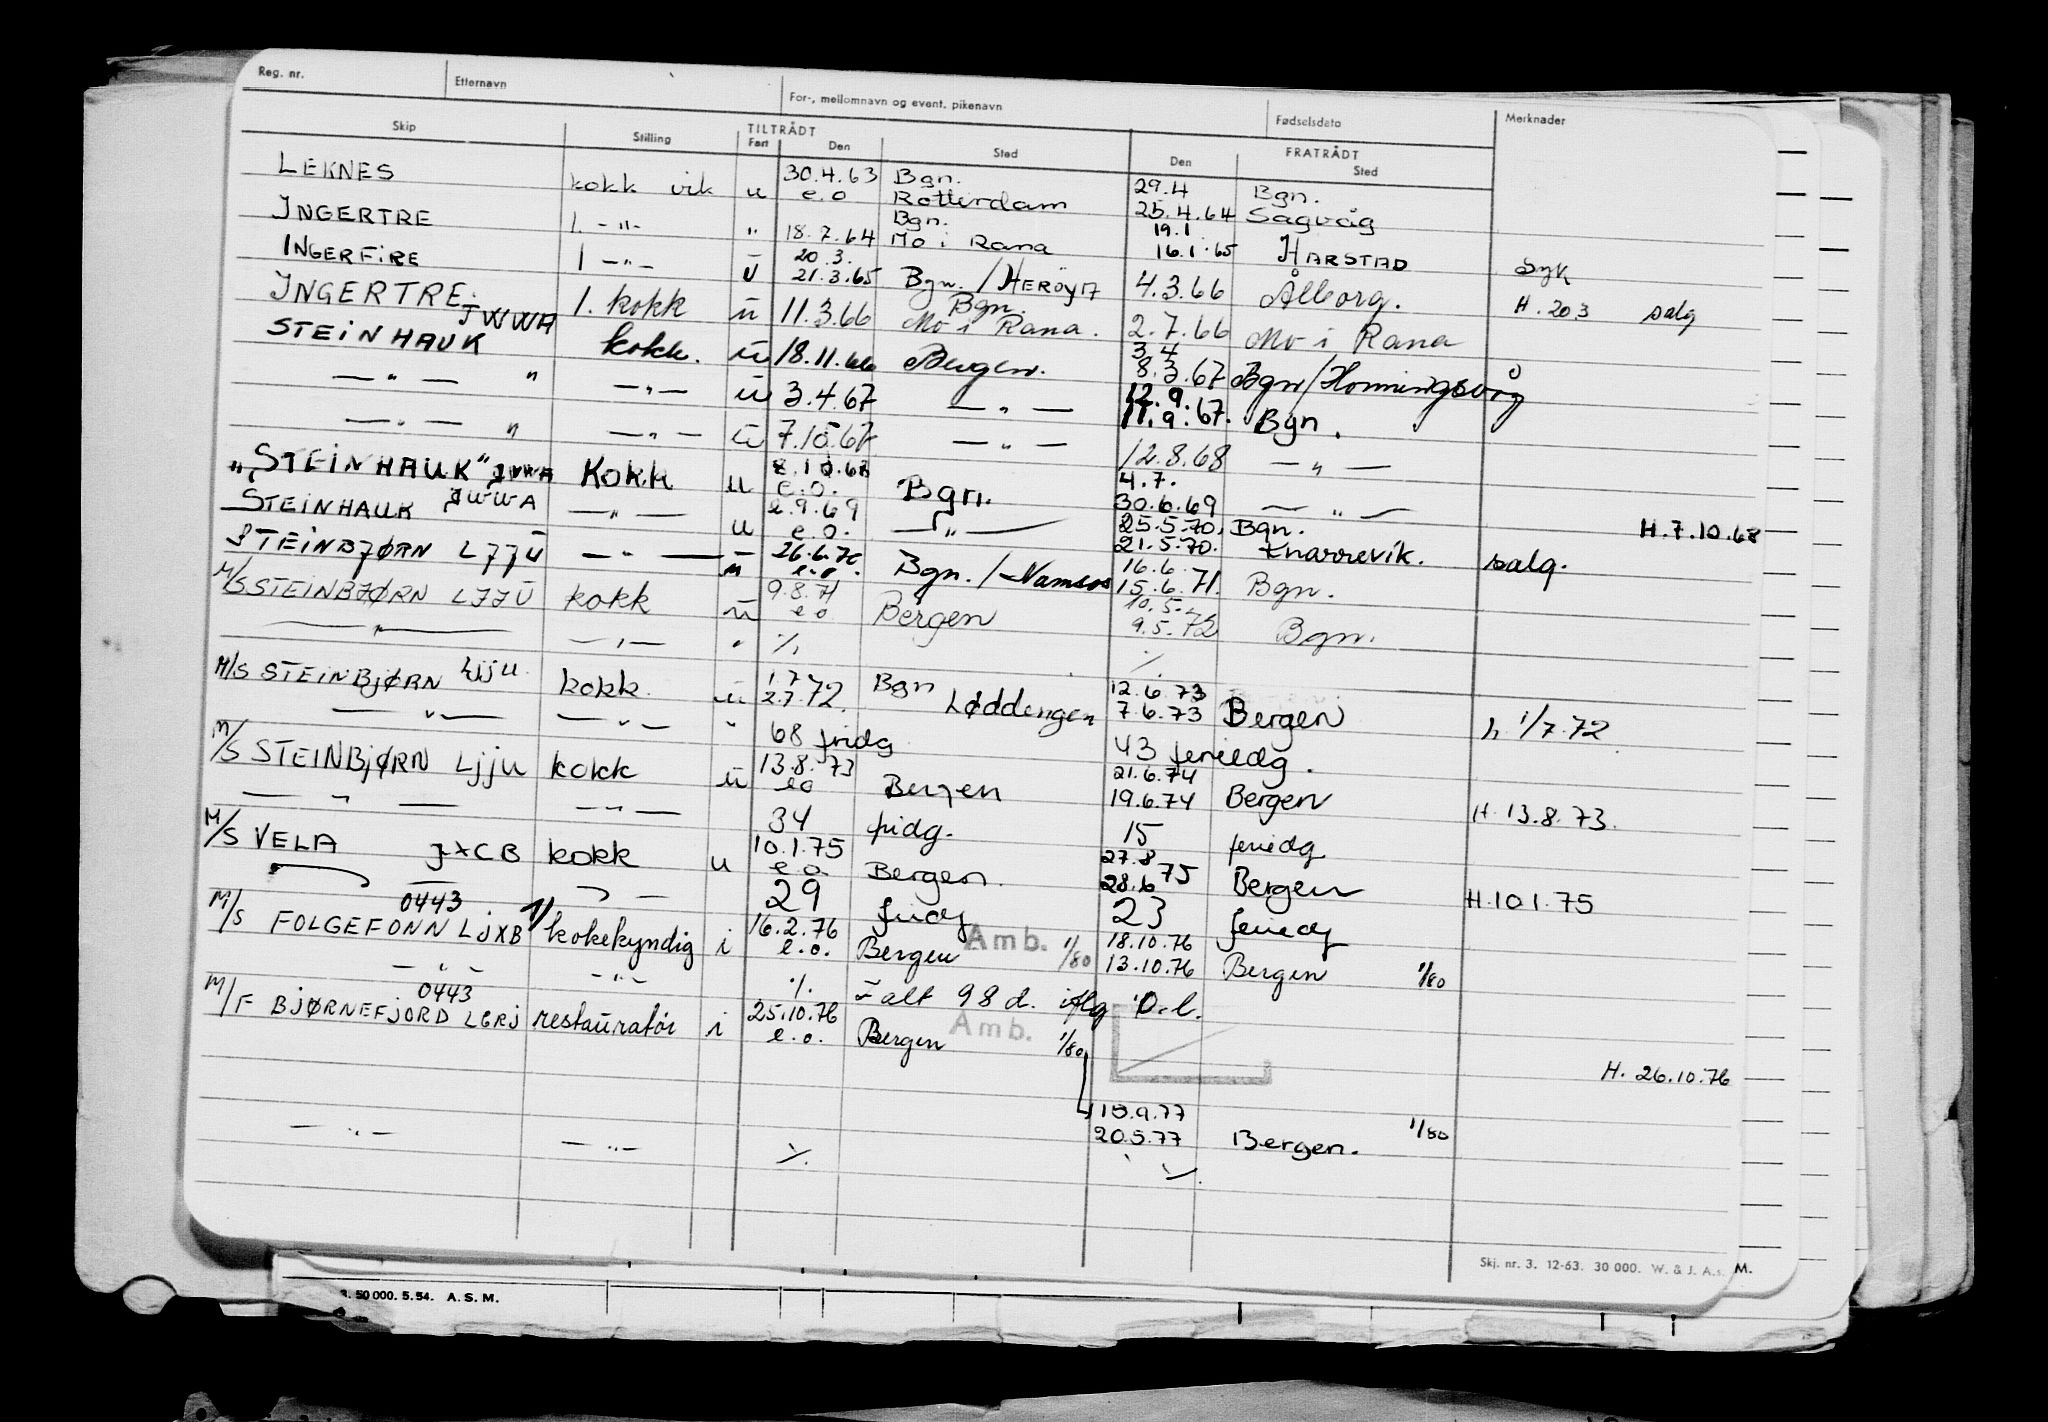 Reg. nr. Etternavn For-, mellomnavn og event. pikenavn Fødselsdato Merknader
Skip Stilling TILTRÅDT FRATRÅDT
Fart Den Sted Den Sted
LEKNES kokk vik u 30.4.63 Bgn. 29.4 Bgn.
e.o Rotterdam 25.4.64 Sagvåg
INGERTRE 1. -"- " Bgn. 19.1
18.7.64 Mo i Rana 16.1.65 HARSTAD syk
INGERFIRE 1 -"- u 20.3.
21.3.65 Bgn. / HERÖYA 4.3.66 Ålborg. H. 20 3 salg
INGERTRE JWWA 1. kokk u 11.3.66 Bgn.
Mo i Rana. 2.7.66 Mo i Rana
STEINHAUK kokk. u 18.11.66 Bergen. 3.4
8.3.67 Bgn/Honningsvåg
-"- " -"- u 3.4.67 -"- 12.9.
11.9.67. Bgn.
-"- " -"- u 7.10.67 -"- 12.8.68 -"-
"STEINHAUK" JWWA Kokk u 8.10.68
e.o. Bgn. 4.7.
30.6.69 -"- H.7.10.68
STEINHAUK JWWA -"- u e.9.69
e.o. -"- 25.5.70, Bgn.
21.5.70. Knarrevik. salg.
STEINBJØRN LJJU -"- u 26.6.70
e.o. Bgn. / Namsos 16.6.
15.6.71. Bgn.
M/S STEINBJØRN LJJU kokk u 9.8.71
e o Bergen 10.5.
9.5.72 Bgn.
-"- -"- " %, %
M/S STEINBJØRN Ljju kokk. u 1.7
2.7.72. Bgn Løddingen 12.6.73
7.6.73 Bergen h. 1/7.72
-"- -"- " 68 fridg 43 feriedg.
M/S STEINBJØRN Ljju kokk u 13.8.73
e o Bergen 21.6.74
19.6.74 Bergen H. 13.8.73.
-"- -"- 34 fridg. 15 feriedg
M/S VELA JXCB kokk u 10.1.75
e o Bergen. 27.8
28.6 75 Bergen H.10.1.75
29 fridg 23 feriedg
0443
M/S FOLGEFONN LJXB 1) kokekyndig i 16.2.76
e.o. Bergen Amb. 1/80 18.10.76
13.10.76 Bergen 1/80
-"- -"- %. I alt 98 d. iflg D.b.
0443
M/F BJØRNEFJORD LGRJ restauratør i 25.10.76
e.o. Bergen Amb. 1/80
H. 26.10.76
15.9.77
20.5.77 Bergen. 1/80
-"- -"- %. %.
Skj. nr. 3. 12-63. 30 000. W. & J. A.s. M.
50 000. 5. 54. A. S. M.